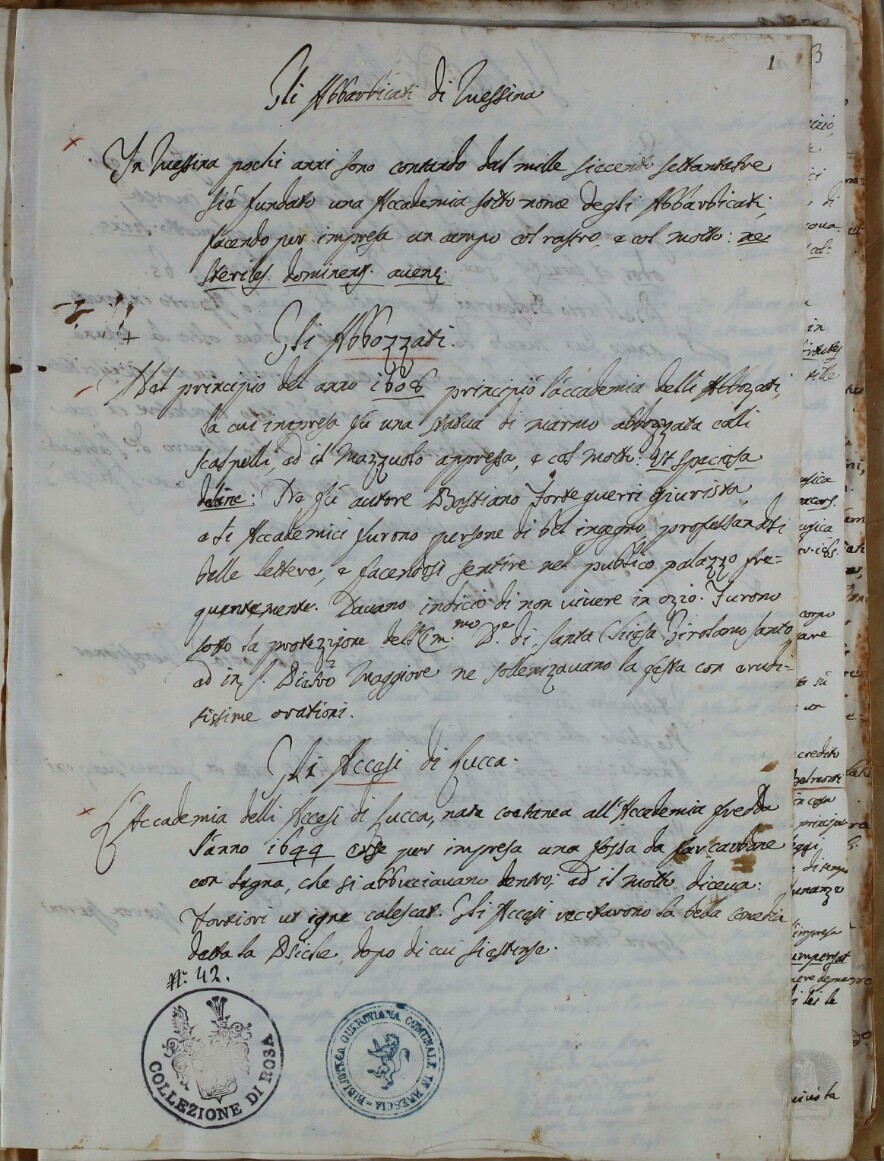 1
3
Gli Abbarbicati di Messina
In Messina pochi anni sono contando dal mille siccento settantatre
siè fundato una Accademia sotto nome degli Abbarbicati,
facendo per impresa un campo col rastro, e col motto: ne
steriles dominent. aven:
Gli Abbozzati.
Nel principio del anno 1608 principiò l'accademia delli Abbozzati,
la cui impresa fù una statua di marmo abbozzata colli
scalpelli, ed il Mazzuolo appresso, e col motto: Ut speciosa
dolene: Ne fù autore Bastiano Forteguerri Giurista,
e li Accademici furono persone di bel ingegno, professandosi
belle lettere, e facendosi sentire nel publico palazzo fre-
quentemente. Davano indicio di non vivere in ozio. Furono
sotto la protezzione dell'Em.mo D.e di Santa Chiesa Girolamo Santo
ed in S. Pietro Maggiore ne sollenizavano la festa con erudi-
tissime orationi.
Gli Accesi di Lucca.
L'Accademia delli Accesi di Lucca, nata coetanea all'Accademia fredda
l'anno 1644 erse per impresa una fossa da far carbone
con legna, che si abbruciavano dentro, ed il motto diceva:
fortiori ut igne calescat. Gli Accesi recitarono la bella comedia
detta la Psiche, dopo di cui siestinse.
N.° 42.
COLLEZIONE DI ROSA
BIBLIOTECA QUERINIANA COMUNALE IN BRESCIA